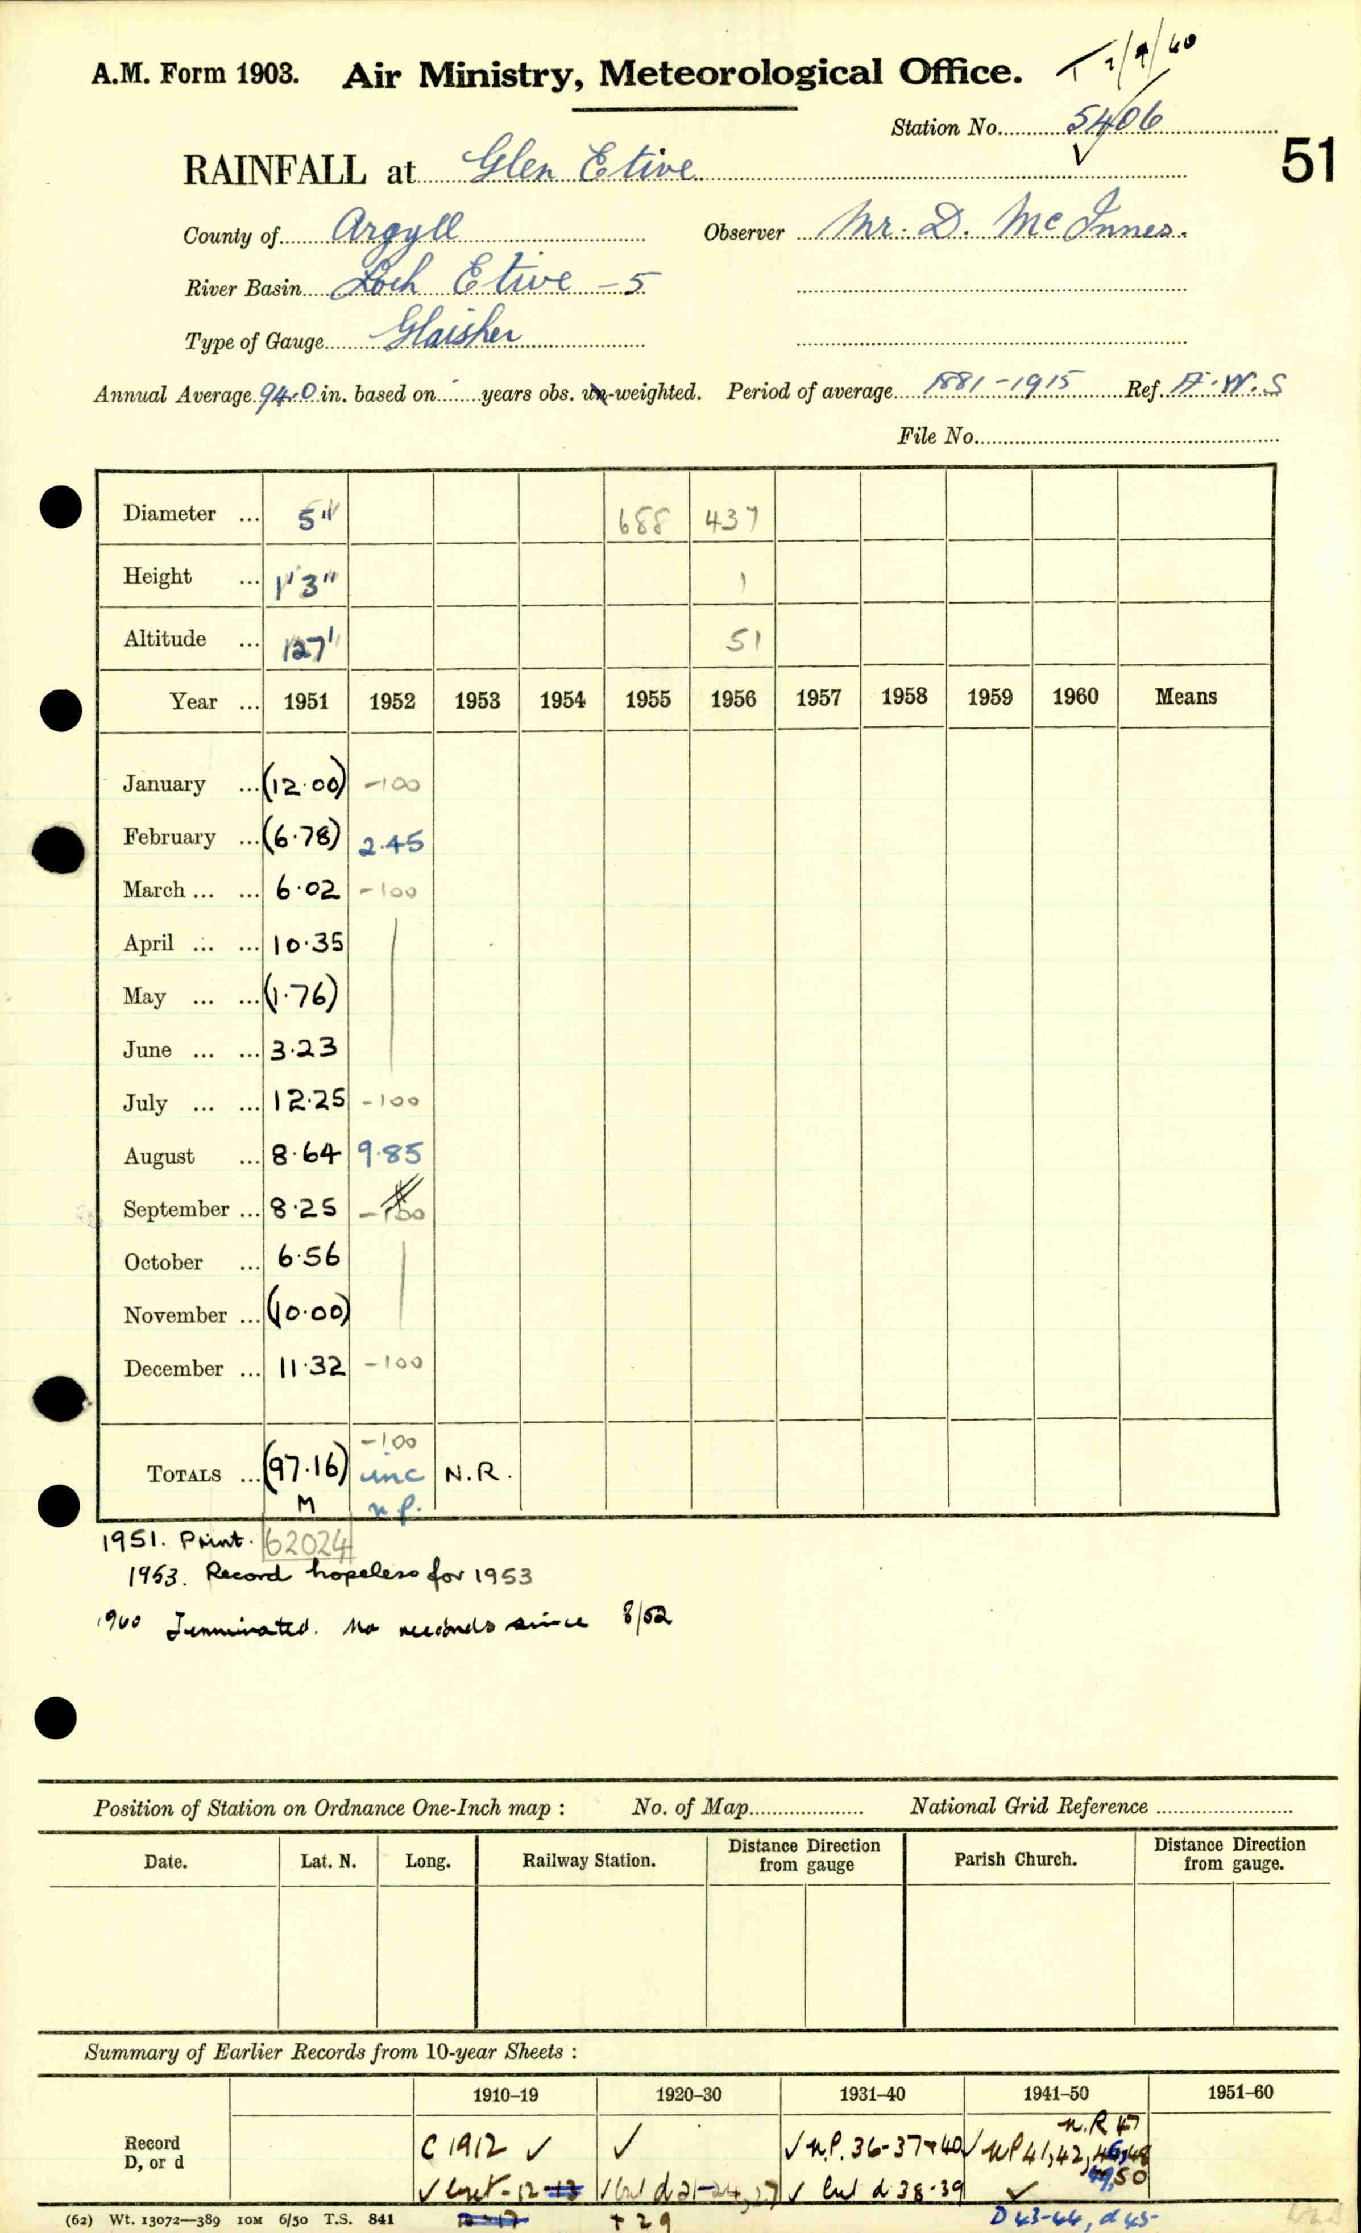 T 2/9/60
A.M. Form 1903. Air Ministry, Meteorological Office.
Station No. 5406
RAINFALL at Glen Etive 51
County of Argyll Observer Mr. D. McInnes.
River Basin Loch Etive - 5
Type of Gauge Glaisher
Annual Average 94.0 in. based on years obs. un-weighted. Period of average 1881-1915 Ref. A.W.S
File No.
Diameter ... 5" 688 437
Height ... 1' 3" 1
Altitude ... 127' 51
Year ... 1951 1952 1953 1954 1955 1956 1957 1958 1959 1960 Means
January ... (12.00) -100
February ... (6.78) 2.45
March ... ... 6.02 -100
April ... ... 10.35
May ... ... (1.76)
June ... ... 3.23
July ... ... 12.25 -100
August ... 8.64 9.85
September ... 8.25 -100
October ... 6.56
November ... (10.00)
December ... 11.32 -100
-100
TOTALS ... (97.16) inc N.R.
M n.p.
1951. Print. 62024
1953. Record hopeless for 1953
1960 Terminated. No records since 8/52
Position of Station on Ordnance One-Inch map : No. of Map National Grid Reference
Date. Lat. N. Long. Railway Station. Distance from Direction gauge Parish Church. Distance from Direction gauge.
Summary of Earlier Records from 10-year Sheets :
1910-19 1920-30 1931-40 1941-50 1951-60
n.R 47
Record C 1912 ✓ ✓ ✓ n.P. 36-37+40 ✓ NP 41,42,46,48
D, or d ✓ 12-13 ✓ but d 21-24, 27 ✓ but d 38-39 ✓ 49,50
(62) Wt. 13072—389 10M 6/50 T.S. 841 + 29 D 43-44, d 45-